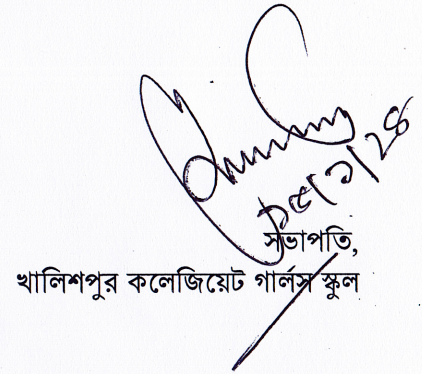 সভাপতি,
খালিশপুর কলেজিয়েট গার্লস স্কুল